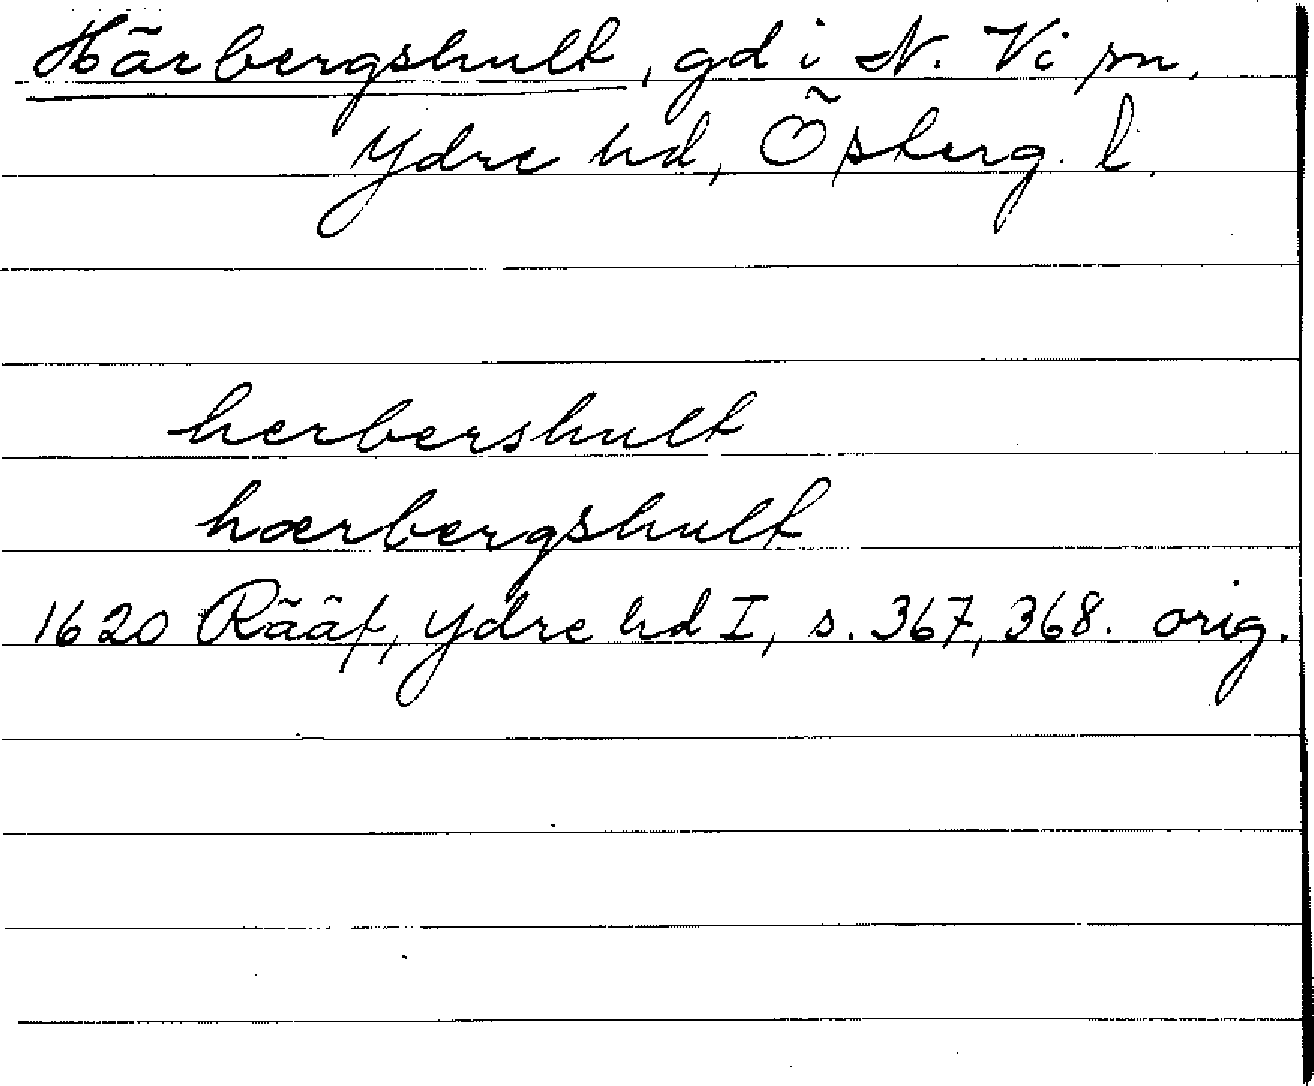 Härbergshult, gd i N. Vi sn,
Ydre hd, Österg. l.
herbershult
hærbergshult
1620 Rääf, Ydre hd I, s. 367, 368. orig.